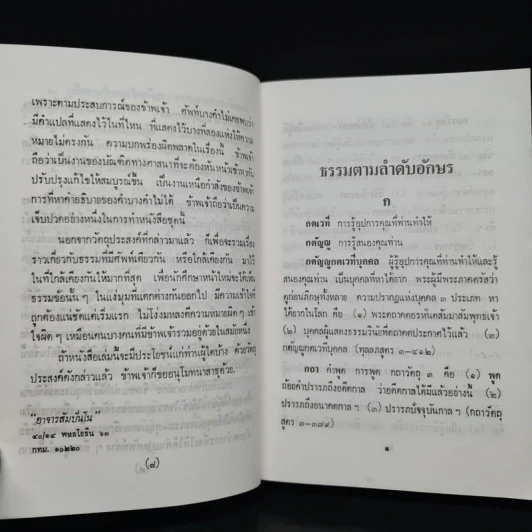 เพราะตามประสบการณ์ของข้าพเจ้า ศัพท์บางคำไม่เคยพบว่า
มีคำแปลที่แสดงไว้ในที่ไหน ที่แสดงไว้บางทีสองแห่งให้ความ
หมายไม่ตรงกัน ความบกพร่องผิดพลาดในเรื่องนี้ ข้าพเจ้า
ถือว่าเป็นงานของบัณฑิตทางศาสนาที่จะต้องหันหน้าเข้าหากัน
ปรับปรุงแก้ไขให้สมบูรณ์ขึ้น เป็นงานเหนือกำลังของข้าพเจ้า
ที่หาคำอธิบายของคำบางคำไม่ได้ ข้าพเจ้าถือว่าเป็นความ
เจ็บปวดอย่างหนึ่งในการทำหนังสือชุดนี้.
นอกจากวัตถุประสงค์ที่กล่าวมาแล้ว ก็เพื่อจะรวมเรื่อง
ราวเกี่ยวกับธรรมที่มีศัพท์เดียวกัน หรือใกล้เคียงกัน มาไว้
ในที่ใกล้เคียงกันให้มากที่สุด เพื่อนักศึกษาหน้าใหม่จะได้เห็น
ธรรมข้อนั้น ๆ ในแง่มุมที่แตกต่างกันออกไป มีความเข้าใจที่
ถูกต้องแน่ชัดแต่เริ่มแรก ไม่โง่งมหลงตีความหมายผิด ๆ เข้า
ใจผิด ๆ เหมือนคนบางคนที่มีข้าพเจ้ารวมอยู่ด้วยในสมัยหนึ่ง
ถ้าหนังสือเล่มนั้นจะมีประโยชน์แก่ท่านผู้ใดบ้าง ด้วยวัตถุ
ประสงค์ดังกล่าวแล้ว ข้าพเจ้าก็ขออนุโมทนาสาธุด้วย.
"อาจารสัมปันโน"
๔๐/๑๔ พหลโยธิน ๖๓
กทม. ๑๐๒๒๐
(๘)
ธรรมตามลำดับอักษร
ก
กตเวที การรู้อุปการคุณที่ท่านทำให้
กตัญญู การรู้สนองคุณท่าน
กตัญญูกตเวทีบุคคล ผู้รู้อุปการคุณที่ท่านทำให้และรู้
สนองคุณท่าน เป็นบุคคลที่หาได้ยาก พระผู้มีพระภาคตรัสว่า
ดูก่อนภิกษุทั้งหลาย ความปรากฏแห่งบุคคล ๓ ประเภท หา
ได้ยากในโลก คือ (๑) พระตถาคตอรหันตสัมมาสัมพุทธเจ้า
(๒) บุคคลผู้แสดงธรรมวินัยที่ตถาคตประกาศไว้แล้ว (๓)
กตัญญูกตเวทีบุคคล (ทุลลภสูตร ๓-๔๑๒)
กถา คำพูด การพูด กถาวัตถุ ๓ คือ (๑) พูด
ถ้อยคำปรารภถึงอดีตกาล ว่าอดีตกาลได้มีแล้วอย่างนี้ (๒)
ปรารภถึงอนาคตกาล ๆ (๓) ปรารภปัจจุบันกาล ๆ (กถาวัตถุ
สูตร ๓-๓๗๙)
๑